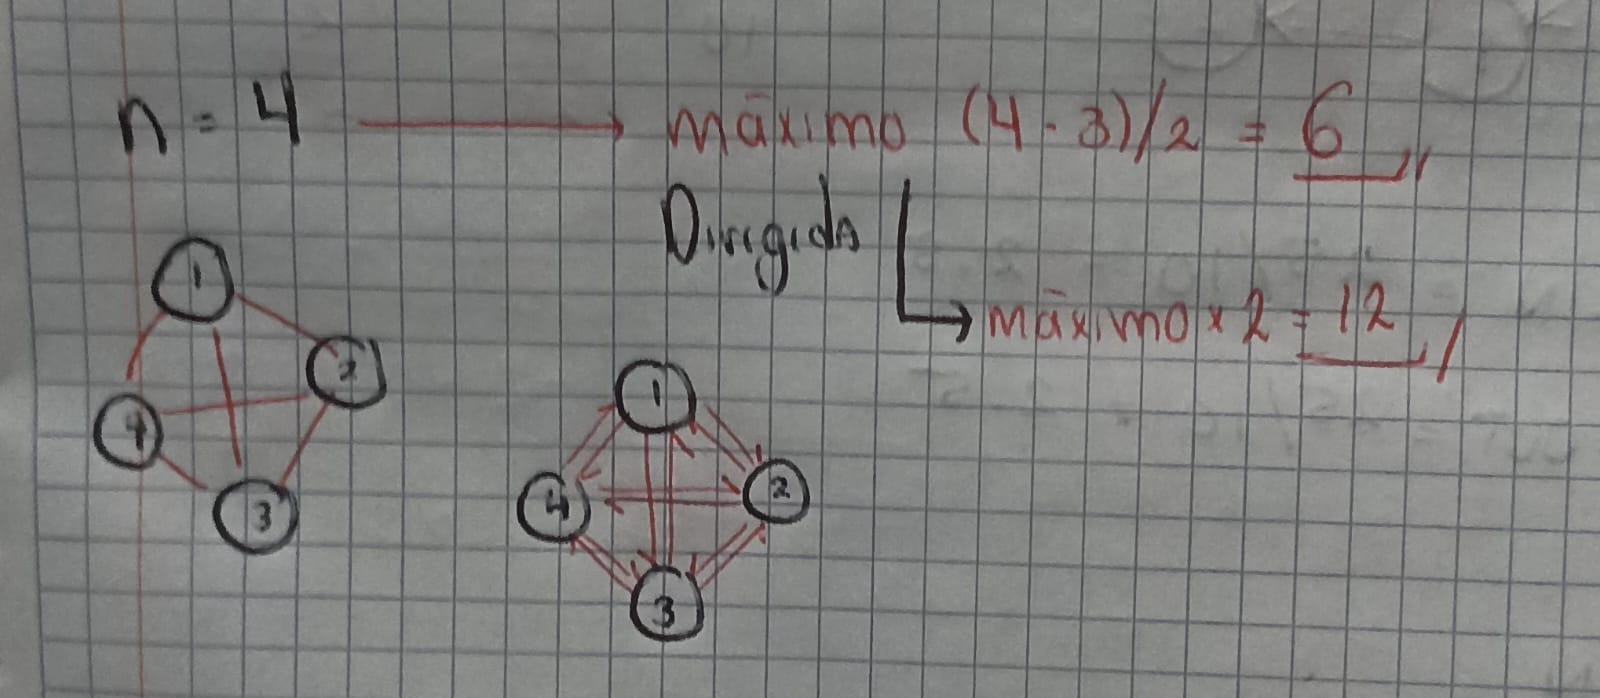 n = 4 → máximo (4 · 3)/2 = 6
Dirigido
→ máximo × 2 = 12
1
2
4
3
1
4
2
3